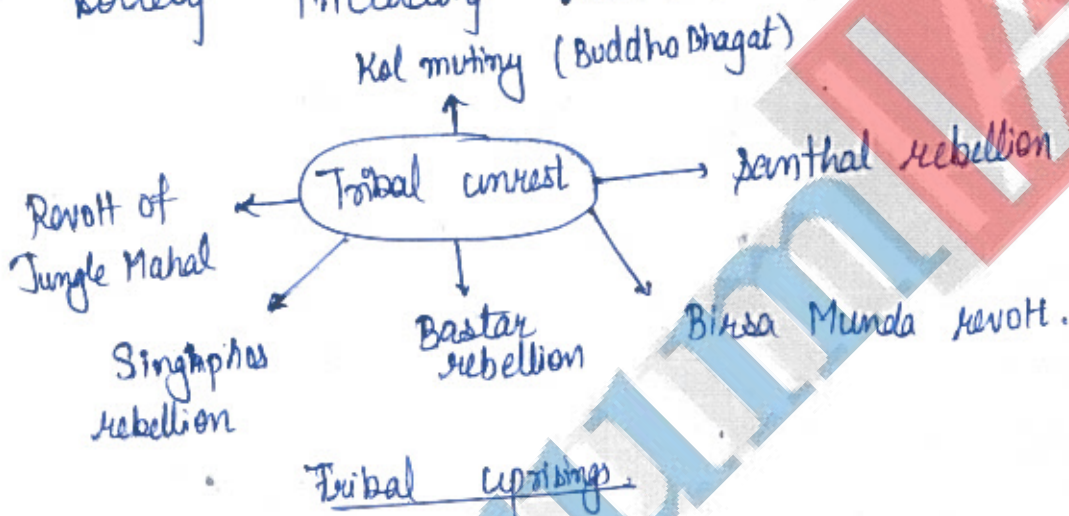 Kol mutiny (Buddho Bhagat)
Tribal unrest
Santhal rebellion
Revolt of
Jungle Mahal
Singhphos
rebellion
Bastar
rebellion
Birsa Munda revolt.
Tribal uprisings.